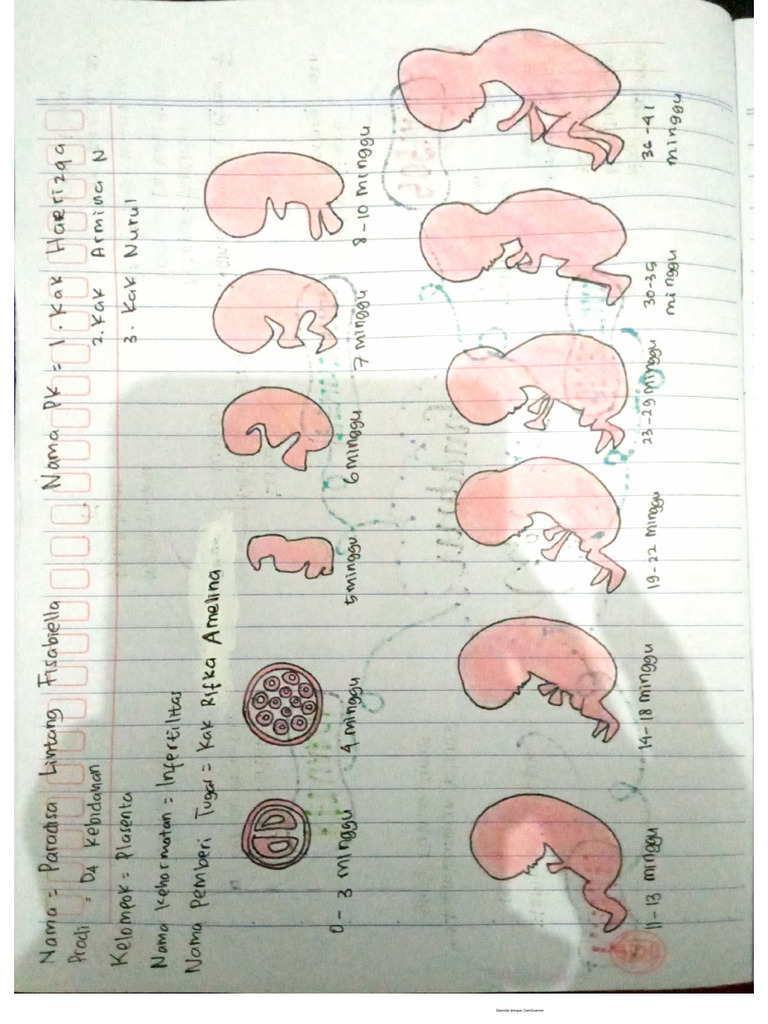 Nama = Paradisa Lintang Fisabiella
Prodi = D4 Kebidanan
Kelompok = Plasenta
Nama Kehormatan = Infertilitas
Nama Pemberi Tugas = Kak Rifka Amelina
Nama PK = 1. Kak Haerizqa
2. Kak Armina N
3. Kak Nurul
0 - 3 minggu
4 minggu
5 minggu
6 minggu
7 minggu
8 - 10 minggu
11 - 13 minggu
14 - 18 minggu
19 - 22 minggu
23 - 29 minggu
30 - 35 minggu
36 - 41 minggu